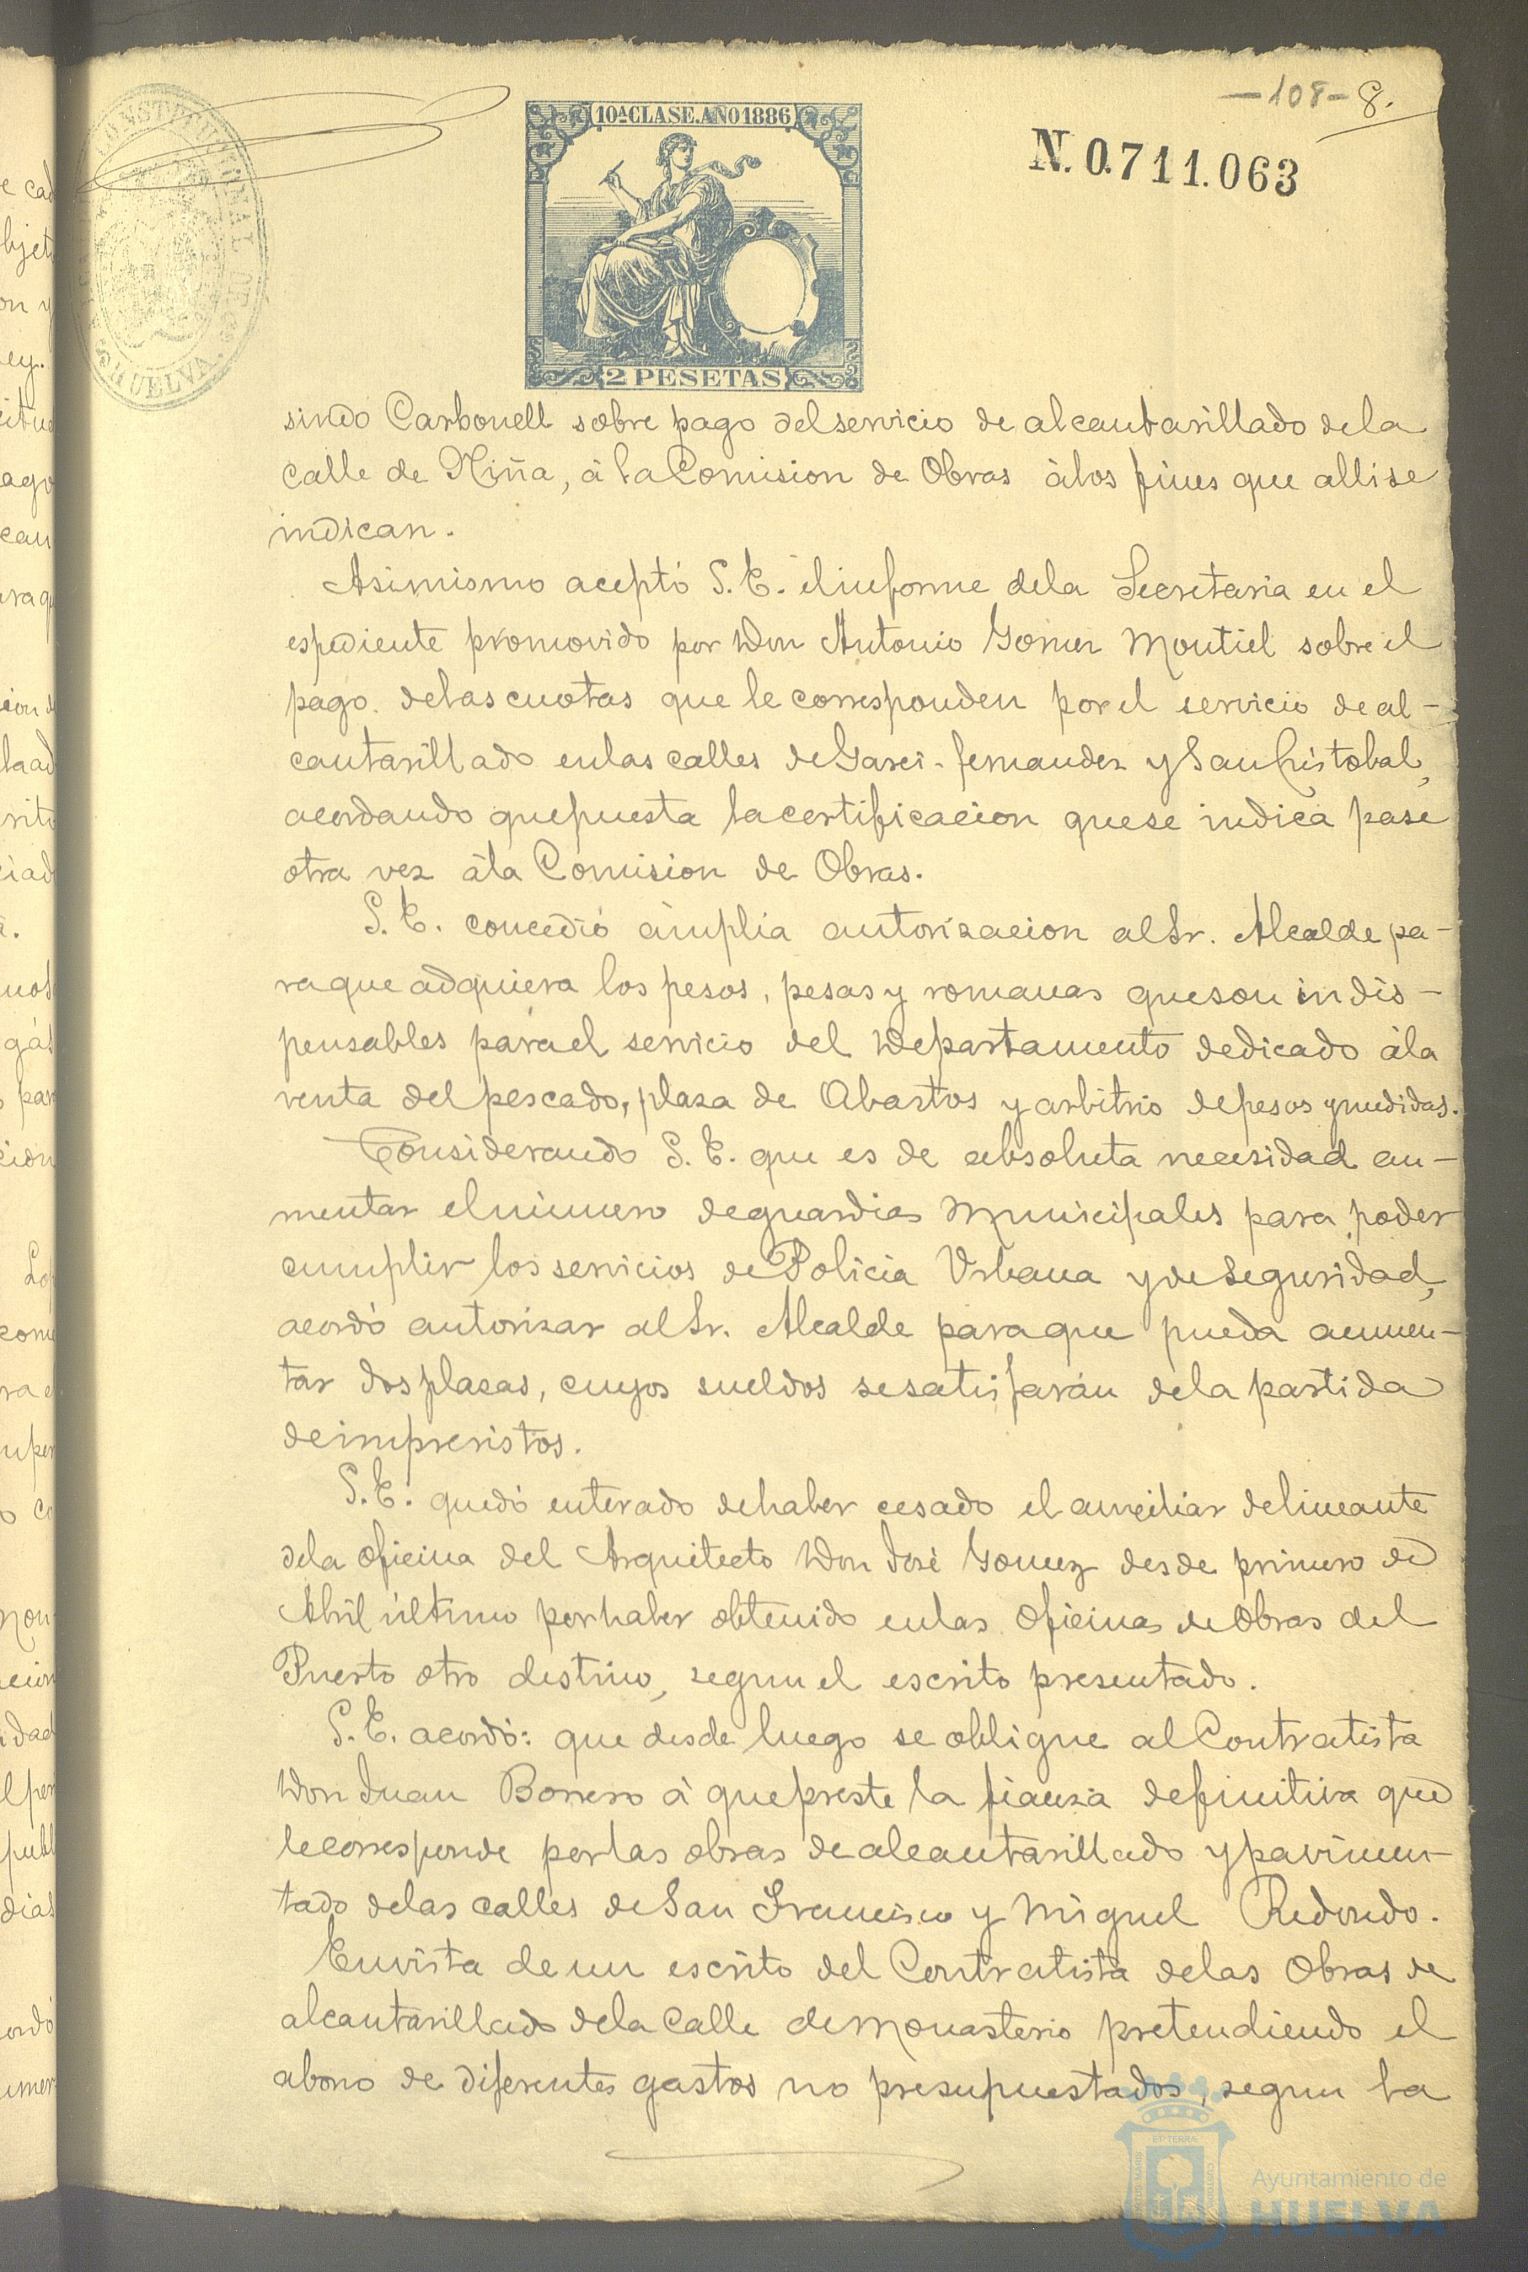 -108- 8.
10ª CLASE. AÑO 1886
N. 0.711.063
CONSTITUCIONAL DE
HUELVA.
2 PESETAS
sindo Carbonell sobre pago del servicio de alcantarillado de la
calle de Niña, á la Comision de Obras á los fines que alli se
indican.
Asimismo aceptó S. E. el informe de la Secretaria en el
espediente promovido por Don Antonio Gomez Montiel sobre el
pago de las cuotas que le corresponden por el servicio de al-
cantarillado en las calles de Garci-fernandez y San Cristobal,
acordando que puesta la certificacion que se indica pase
otra vez á la Comision de Obras.
S. E. concedió ámplia autorizacion al Sr. Alcalde pa-
ra que adquiera los pesos, pesas y romanas que son indis-
pensables para el servicio del Departamento dedicado á la
venta del pescado, plaza de Abastos y arbitrio de pesos y medidas.
Considerando S. E. que es de absoluta necesidad au-
mentar el número de guardias Municipales para poder
cumplir los servicios de Policia Urbana y de Seguridad,
acordó autorizar al Sr. Alcalde para que pueda aumen-
tar dos plazas, cuyos sueldos se satisfarán de la partida
de imprevistos.
S. E. quedó enterado de haber cesado el auxiliar delineante
de la oficina del Arquitecto Don José Gomez desde primero de
Abril último por haber obtenido en las Oficinas de Obras del
Puerto otro destino, segun el escrito presentado.
S. E. acordó: que desde luego se obligue al Contratista
Don Juan Borrero á que preste la fianza definitiva que
le corresponde por las obras de alcantarillado y pavimen-
tado de las calles de San Francisco y Miguel Redondo.
En vista de un escrito del Contratista de las Obras de
alcantarillado de la Calle de Monasterio pretendiendo el
abono de diferentes gastos no presupuestados, segun la
Ayuntamiento de
HUELVA